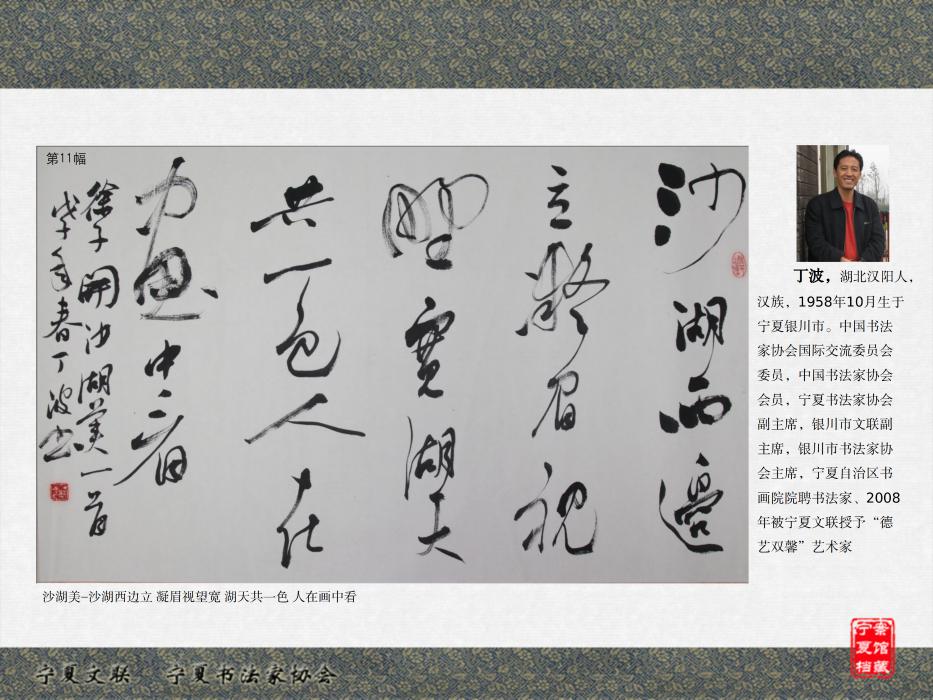 第11幅
沙湖西邊
立凝眉視
望寬湖天
共一色人在
畫中看
徐子開沙湖美一首
戊子年春丁波書
沙湖美–沙湖西边立 凝眉视望宽 湖天共一色 人在画中看
丁波，湖北汉阳人，
汉族，1958年10月生于
宁夏银川市。中国书法
家协会国际交流委员会
委员，中国书法家协会
会员，宁夏书法家协会
副主席，银川市文联副
主席，银川市书法家协
会主席，宁夏自治区书
画院院聘书法家、2008
年被宁夏文联授予“德
艺双馨”艺术家
宁夏档案馆藏
宁夏文联 宁夏书法家协会